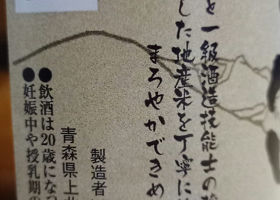 と一級酒造技能士の
した地産米を丁寧に
まろやかできめ
製造者
青森県上北
●飲酒は20歳になっ
●妊娠中や授乳期の